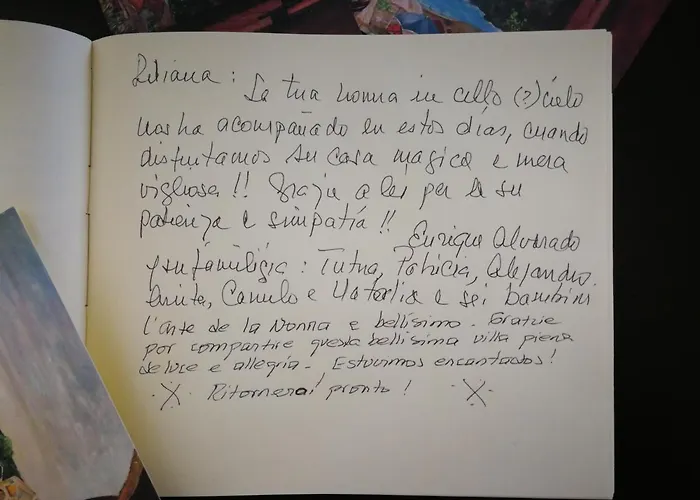 Liliana : La tua nonna in cello (?) cielo
nos ha acompañado en estos días, cuando
disfrutamos su casa magica e mera
vigliosa !! Grazie a lei per la su
patienza e simpatía !!
Enrique Alvarado
y su famiglia : Tutua, Patricia, Alejandro,
Anita, Camilo e Natalia e sei bambini
L'arte de la Nonna e bellisimo. Gratzie
por compartire questa bellisima villa piena
de luce e allegria. Estuvimos encantados!
Ritornerai pronto !